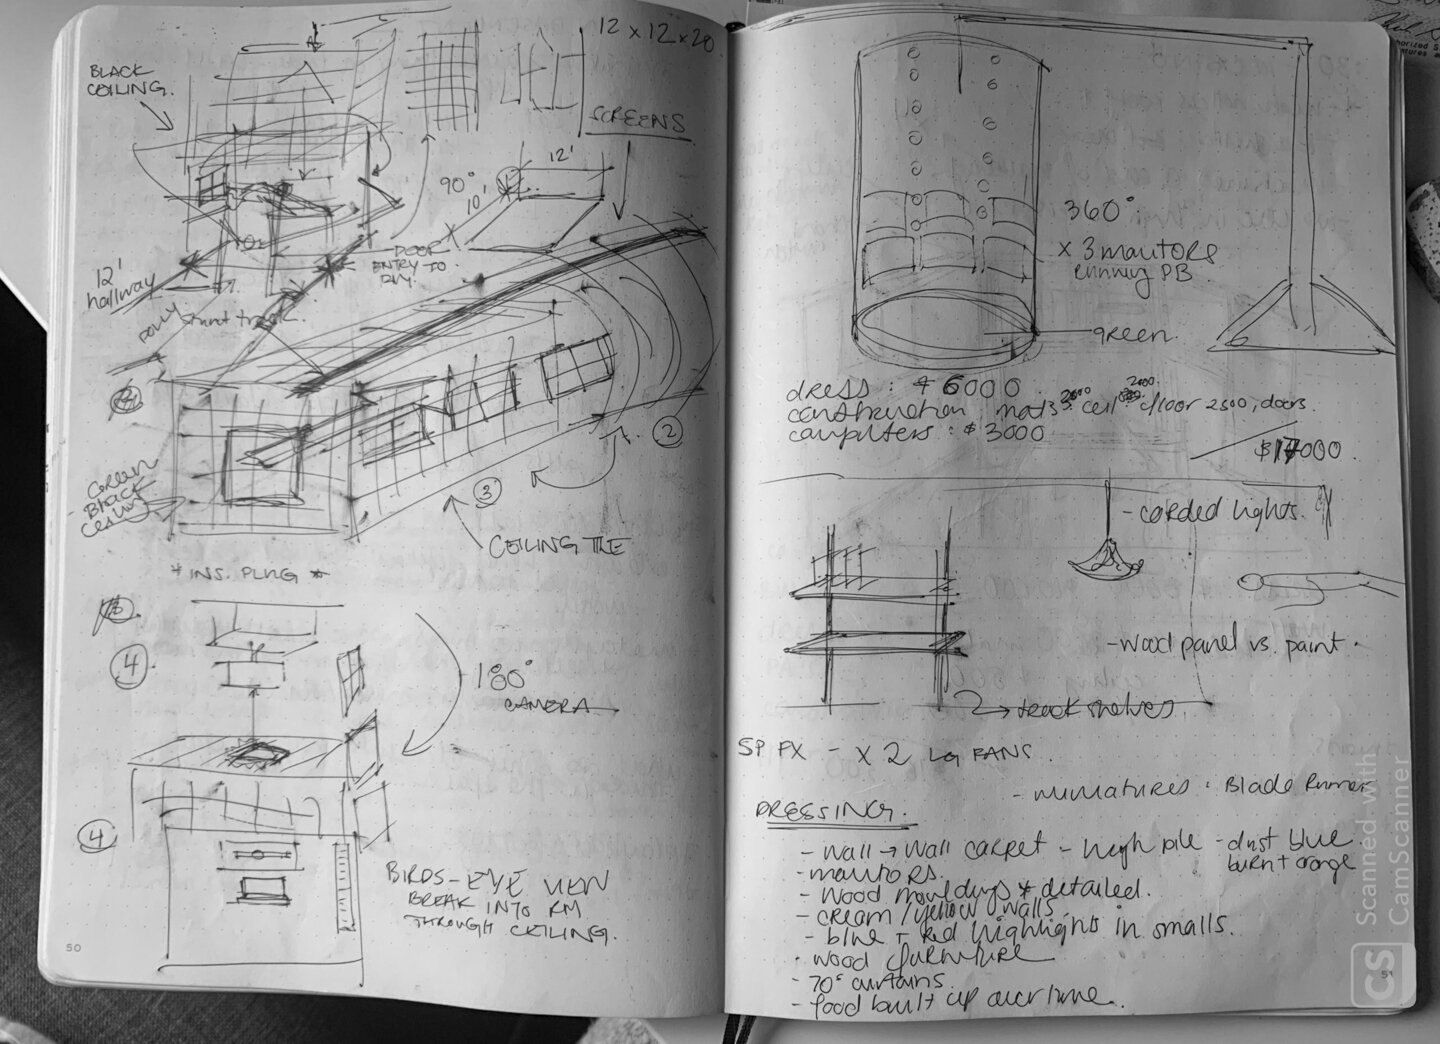 BLACK
CEILING.
12 x 12 x 20
SCREENS
12'
90°
10'
12'
hallway
DOOR
ENTRY TO
2
3
Green
Black
Ceiling
CEILING TILE
* INS. PLUG *
4
180°
CAMERA
4
BIRDS-EYE VIEW
BREAK INTO RM
THROUGH CEILING.
50
360°
x 3 monitors
running PB
green
dress: $ 6000
construction, mats ceil floor 2500, doors.
computers: $ 3000
$17000
- corded lights.
- wood panel vs. paint.
track shelves
SPFX - x 2 LG FANS
- miniatures: Blade Runner
DRESSING.
- wall → wall carpet - high pile - dust blue
burnt orange
- monitors.
- wood mouldings * detailed.
- cream/yellow walls
- blue + red highlights in smalls.
- wood furniture
- 70's curtains.
- food built up overtime.
51
Scanned with
CamScanner
CS